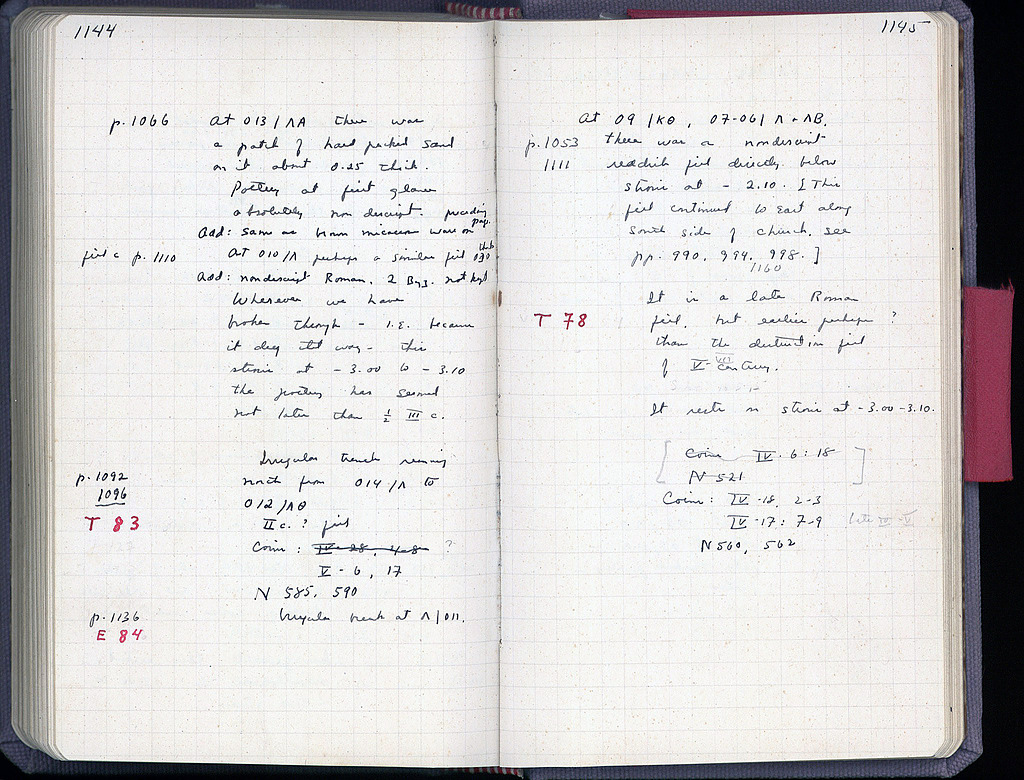 1144
p. 1066 At 013/ΛA there was
a patch of hard packed sand
on it about 0.25 thick.
Pottery at first glance
absolutely non descript. preceding
Add: same as brown micaceous ware on page.
fill c p. 1110 At 010/Λ perhaps a similar fill
Add: nondescript Roman. 2 Byz. not kept
Wherever we have
broken through - i.e. because
it dug that way - this
stosis at - 3.00 to - 3.10
the pottery has seemed
not later than ½ III c.
Irregular trench running
p. 1092 north from 014/Λ to
1096 012/ΛΘ
T 83 II c. ? fill
Coins : IV-28, 4-8 ?
V - 6, 17
N 585, 590
p. 1136 Irregular trench at Λ/011.
E 84
1145
At 09/KΘ, 07-06/Λ-ΛB.
p. 1053 there was a nondescript
1111 reddish fill directly below
at - 2.10. [This
fill continued to East along
South side of church. see
pp. 990, 994, 998. ]
1160
It is a late Roman
T 78 fill, but earlier perhaps ?
than the destruction fill
of V-VII century.
It rests on at -3.00-3.10.
[Coins IV. 6: 18]
N 521
Coins: IV-18, 2-3
IV-17: 7-9 late IV-V
N 560, 562